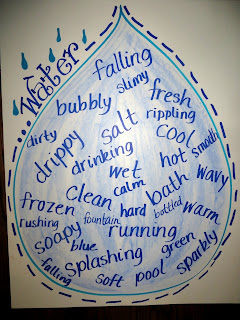 Water
falling
slimy
bubbly fresh
salt rippling
dirty cool
drippy drinking hot smooth
wet wavy
calm
clean bath
frozen hard bottled warm
rushing fountain
soapy running
blue green
splashing sparkly
falling soft pool